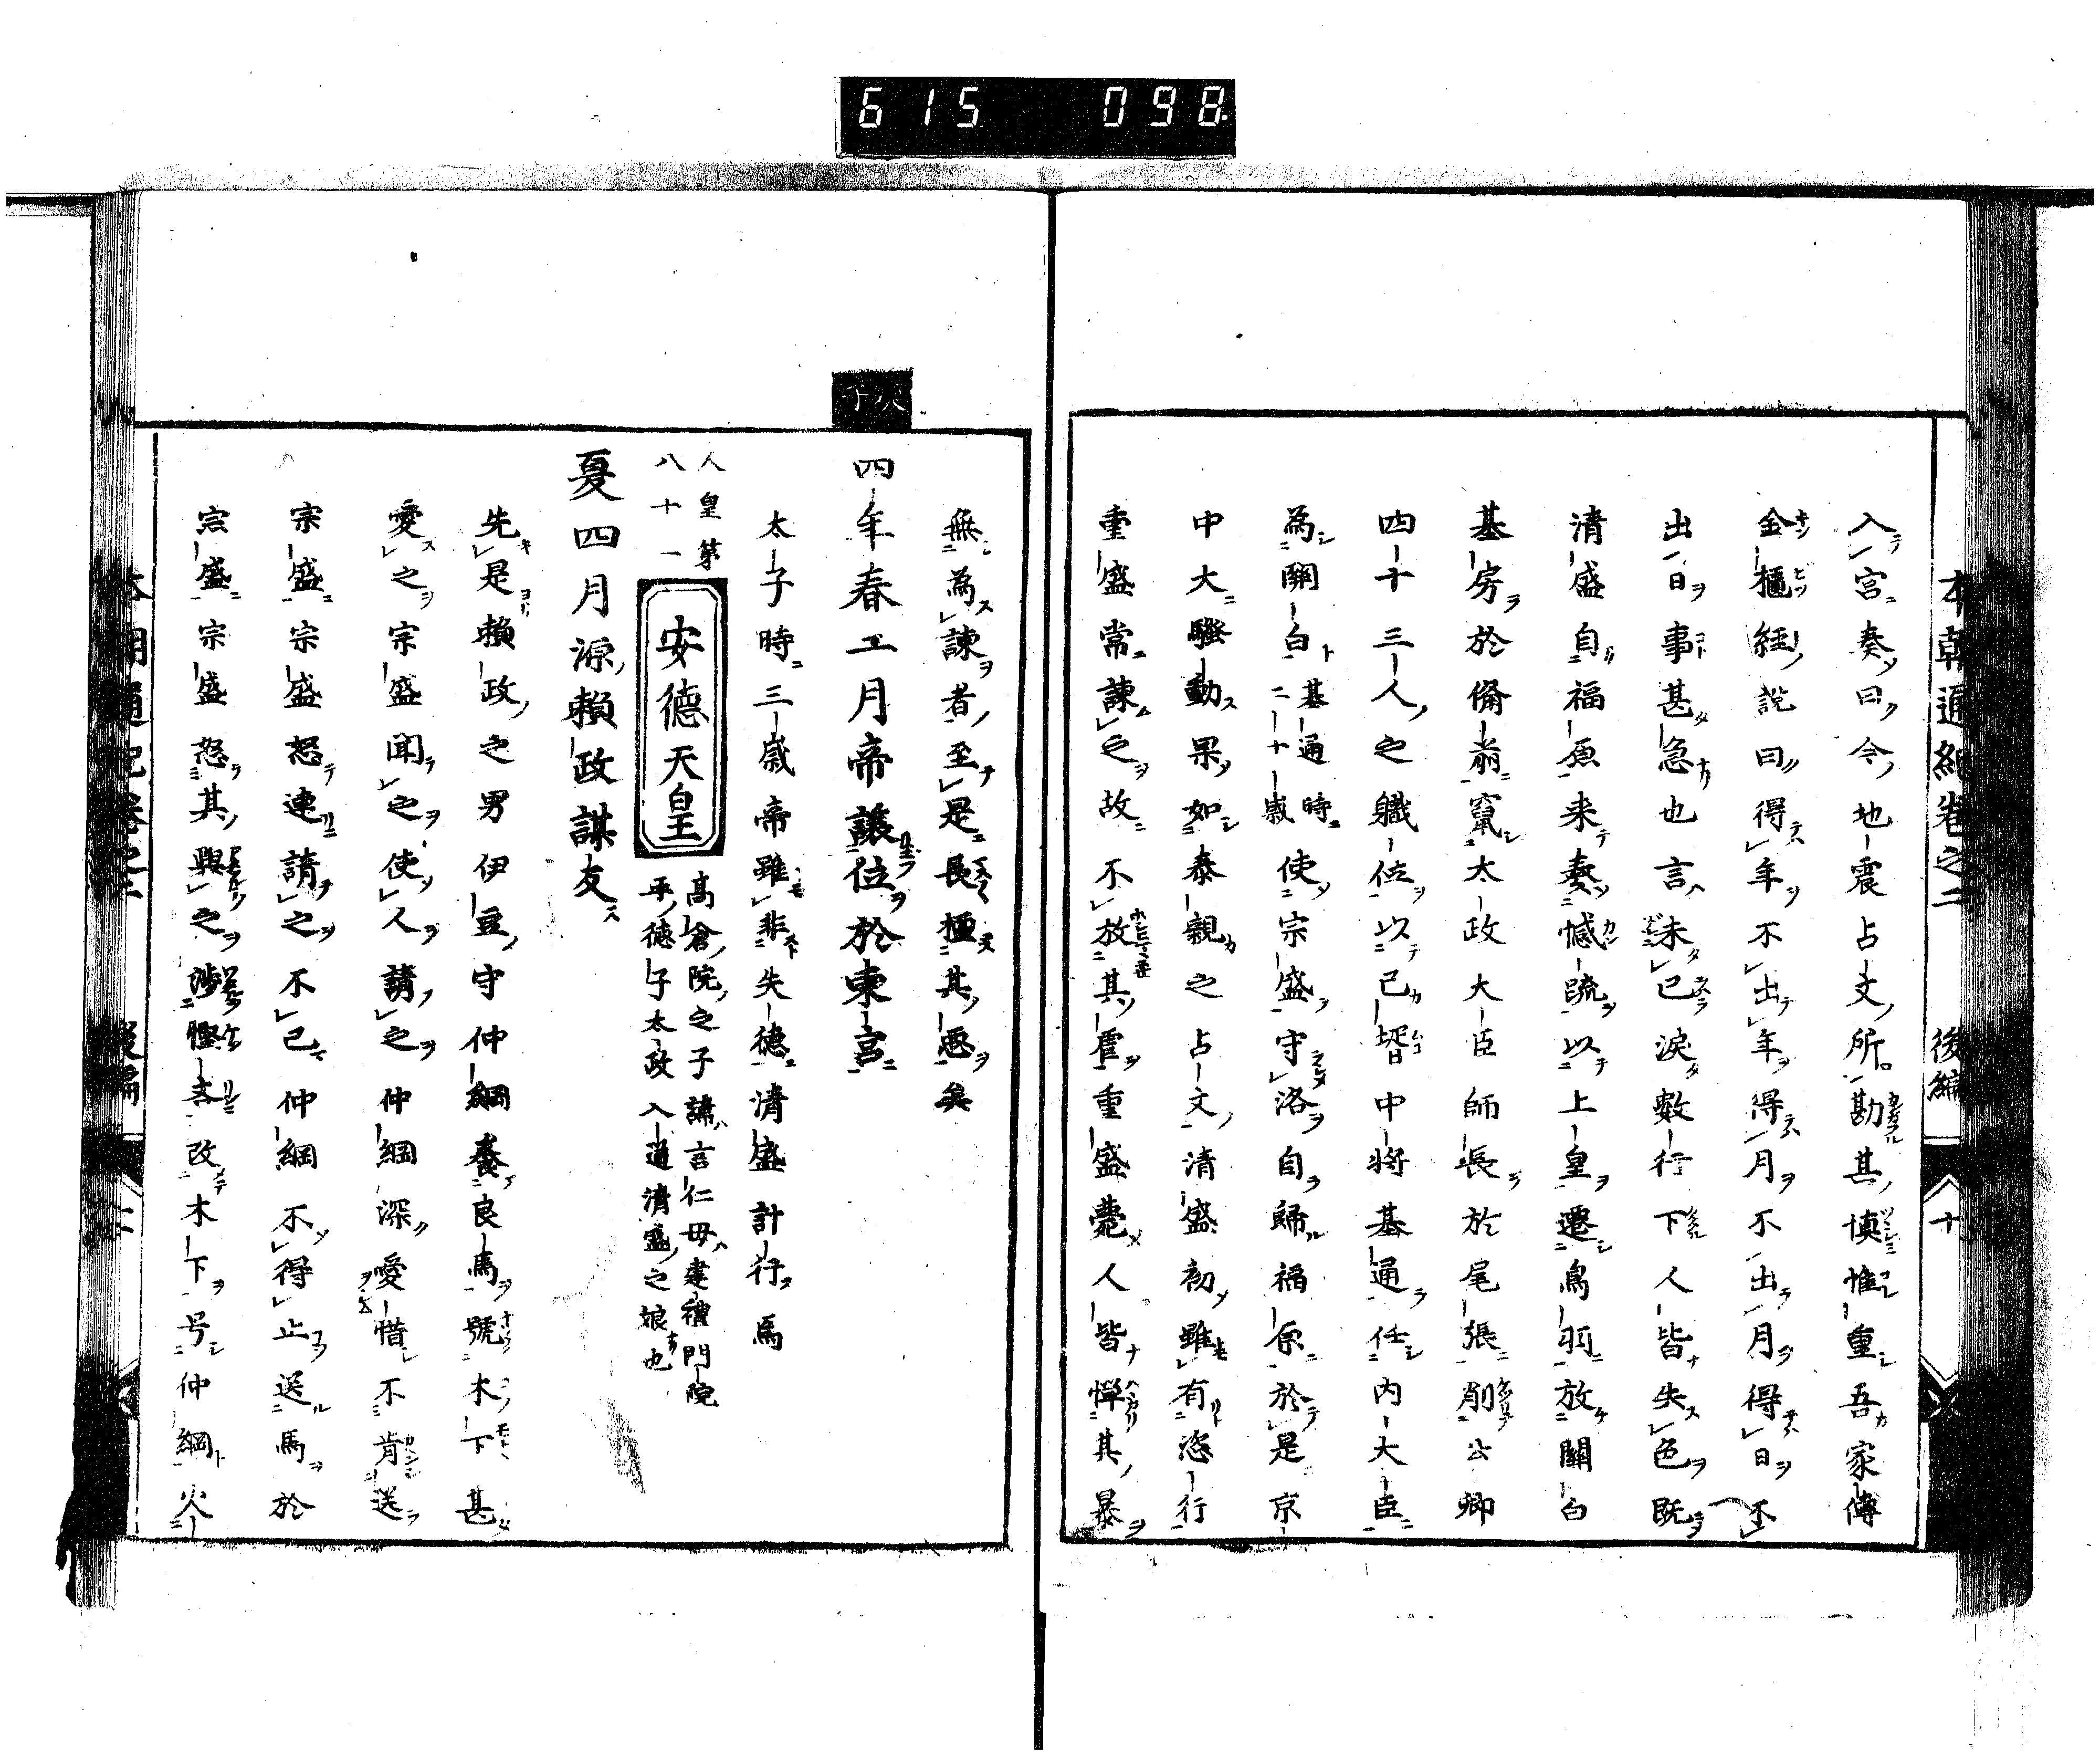 615 098
本朝通紀卷之二 後編 十
入宮奏曰今地震占文所勘其慎惟重吾家傳
金樞經說曰得年不出年得月不出月得日不
出日事甚急也言未已淚數行下人皆失色既
清盛自福原来奏憾疏以上皇遷鳥羽放關白
基房於備前竄太政大臣師長於尾張削公卿
四十三人之職位以己壻中将基通任内大臣
為關白基通時二十歳使宗盛守洛自歸福原於是京
中大騷動果如泰親之占文清盛初雖有恣行
重盛常諫之故不放其虐重盛薨人皆憚其暴
無為諫者至是長檀其惡矣
庚子
四年春二月帝讓位於東宮
太子時三歳帝雖非失德清盛計行焉
人皇第八十一
安德天皇
高倉院之子諱言仁母建禮門院
平德子太政入道清盛之娘也
夏四月源賴政謀反
先是賴政之男伊豆守仲綱養良馬號木下甚
愛之宗盛聞之使人請之仲綱深愛惜不肯送
宗盛宗盛怒連請之不已仲綱不得止送馬於
宗盛宗盛怒其與之渉慳吝改木下号仲綱火
本朝通紀卷之二 後編